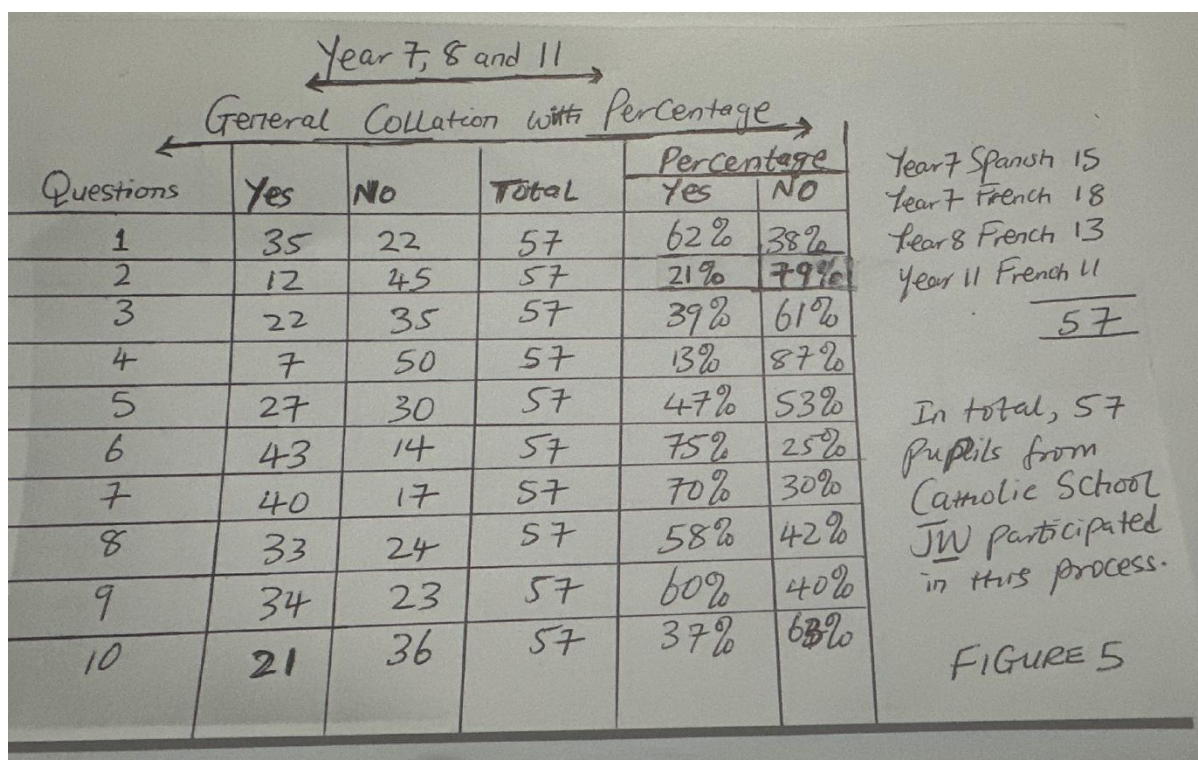 Year 7, 8 and 11
General Collation with Percentage
Questions Yes No Total Percentage Yes No
1 35 22 57 62% 38%
2 12 45 57 21% 79%
3 22 35 57 39% 61%
4 7 50 57 13% 87%
5 27 30 57 47% 53%
6 43 14 57 75% 25%
7 40 17 57 70% 30%
8 33 24 57 58% 42%
9 34 23 57 60% 40%
10 21 36 57 37% 63%
Year 7 Spanish 15
Year 7 French 18
Year 8 French 13
Year 11 French 11
57
In total, 57
pupils from
Catholic School
JW participated
in this process.
FIGURE 5